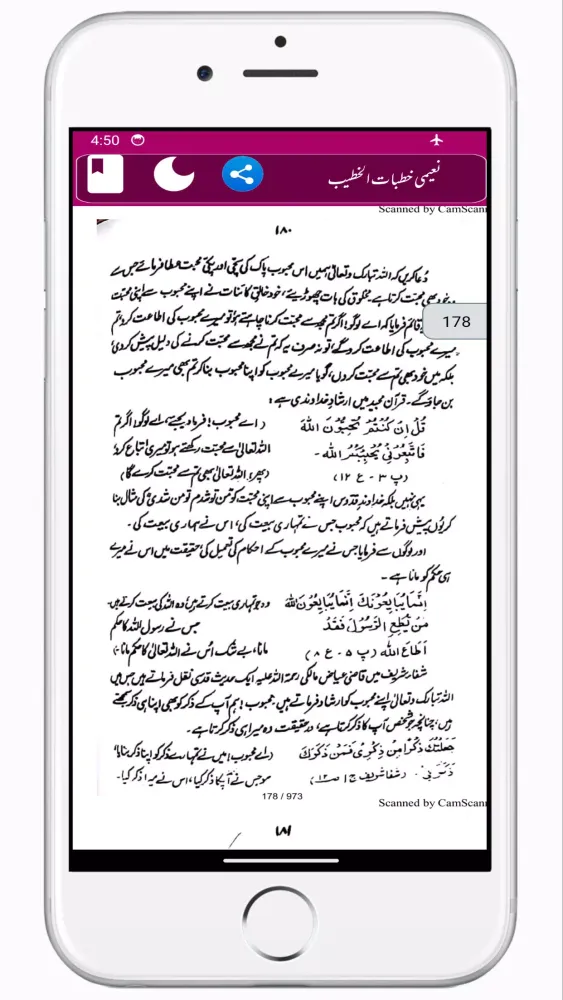 4:50
نعیمی خطبات الخطیب
Scanned by CamScann
۱۸۰
دُعا کریں کہ اللہ تبارک وتعالیٰ ہمیں اس محبوب پاک کی سچی اور پکی محبت عطا فرمائے جس سے
خود بھی محبت کرتا ہے مخلوق کی بات چھوڑیئے، خود خالقِ کائنات نے اپنے محبوب سے اپنی محبت
قائم فرمایا کہ اے لوگو! اگر تم مجھ سے محبت کرنا چاہتے ہو تو میرے محبوب کی اطاعت کرو تم
178
میرے محبوب کی اطاعت کرو گے تو نہ صرف یہ کہ تم نے مجھ سے محبت کرنے کی دلیل پیش کر دی؛
بلکہ میں خود بھی تم سے محبت کروں، گویا میرے محبوب کو اپنا محبوب بنا کر تم بھی میرے محبوب
بن جاؤ گے۔ قرآن مجید میں ارشادِ خداوندی ہے:
قُلْ اِنْ كُنْتُمْ تُحِبُّوْنَ اللّٰهَ (اے محبوب! فرما دیجئے، اے لوگو! اگر تم
فَاتَّبِعُوْنِيْ يُحْبِبْكُمُ اللّٰه۔ اللہ تعالیٰ سے محبت رکھتے ہو تو میری اتباع کرو
(پ ۳ - ع ۱۲) (پھر) اللہ تعالیٰ بھی تم سے محبت کرے گا)
یہی نہیں بلکہ خداوندِ قدوس اپنے محبوب سے اپنی محبت کو من تو شدم تو من شدی کی مثال بنا
کر یوں پیش فرماتے ہیں کہ محبوب جس نے تمہاری بیعت کی، اس نے ہماری بیعت کی۔
اور لوگوں سے فرمایا جس نے میرے محبوب کے احکام کی تعمیل کی حقیقت میں اس نے میرے
ہی حکم کو مانا ہے۔
اِنَّمَا يُبَايِعُوْنَكَ اِنَّمَا يُبَايِعُوْنَ اللّٰهَ وہ جو تمہاری بیعت کرتے ہیں، وہ اللہ کی بیعت کرتے ہیں۔
مَنْ يُّطِعِ الرَّسُوْلَ فَقَدْ جس نے رسول اللہ کا حکم
اَطَاعَ اللّٰه (پ ۵ - ع ۸) مانا، بے شک اُس نے اللہ تعالیٰ کا حکم مانا)
شفا شریف میں قاضی عیاض مالکی رحمۃ اللہ علیہ ایک حدیث قدسی نقل فرماتے ہیں جس میں
اللہ تبارک وتعالیٰ اپنے محبوب کو ارشاد فرماتے ہیں: محبوب! ہم آپ کے ذکر کو بھی اپنا ہی ذکر سمجھتے
ہیں، چنانچہ جو شخص آپ کا ذکر کرتا ہے، درحقیقت وہ میرا ہی ذکر کرتا ہے۔
جَعَلْتُكَ ذِكْرًا مِنْ ذِكْرِيْ فَمَنْ ذَكَرَكَ (اے محبوب! میں نے تمہارے ذکر کو اپنا ذکر بنایا
ذَكَرَنِيْ۔ (شفا شریف ج ۱ ص ۱۲) سو جس نے آپ کا ذکر کیا، اس نے میرا ذکر کیا۔
178 / 973
Scanned by CamScann
۱۸۱